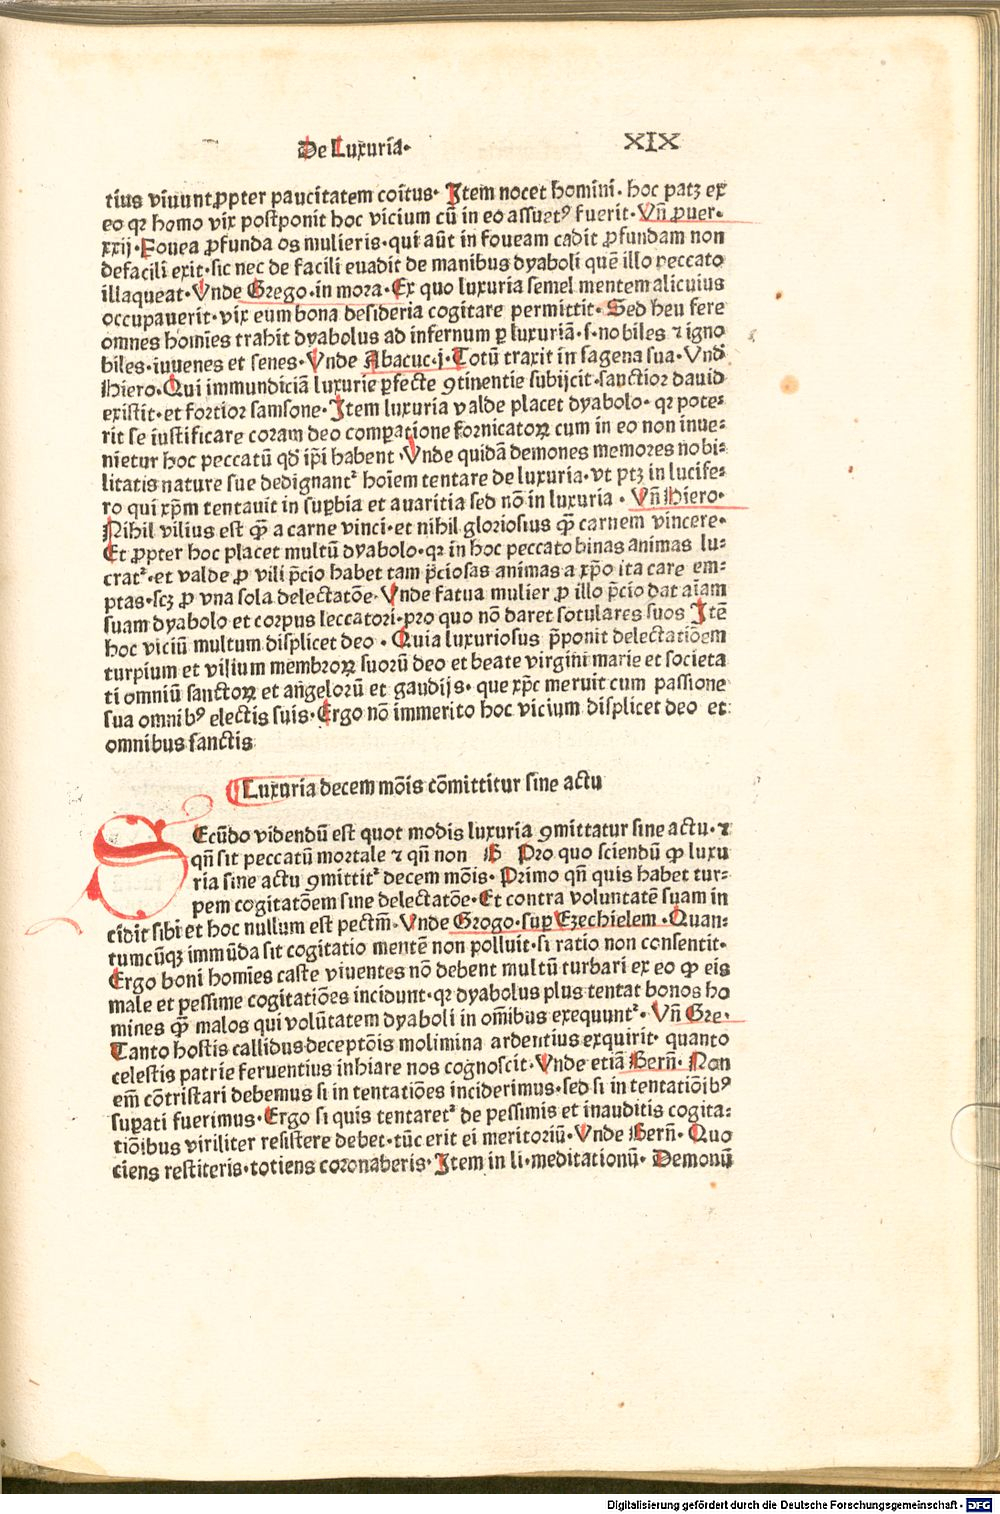 De Luxuria.
XIX
tius viuunt ꝓpter paucitatem coitus. Item nocet homini. hoc patꝫ ex
eo qꝛ homo vix postponit hoc vicium cū in eo assuetꝰ fuerit. Vñ ꝓuer.
xxij. Fouea ꝓfunda os mulieris. qui aūt in foueam cadit ꝓfundam non
defacili exit. sic nec de facili euadit de manibus dyaboli quē illo peccato
illaqueat. Vnde Grego. in mora. Ex quo luxuria semel mentem alicuius
occupauerit. vix eum bona desideria cogitare permittit. Sed heu fere
omnes homies trahit dyabolus ad infernum ꝑ luxuriā. s. nobiles ⁊ igno
biles. iuuenes et senes. Vnde Abacuc. j. Totū traxit in sagena sua. Vnd
Hiero. Qui immundiciā luxurie ꝑfecte ꝯtinentie subijcit. sanctior dauid
existit. et fortior samsone. Item luxuria valde placet dyabolo. qꝛ pote⸗
rit se iustificare coram deo comꝑatione fornicatoꝝ cum in eo non inue⸗
nietur hoc peccatū qd̄ ip̄i habent. Vnde quidā demones memores nobi⸗
litatis nature sue dedignant᷑ hoīem tentare de luxuria. vt ptꝫ in lucife⸗
ro qui xp̄m tentauit in suꝑbia et auaritia sed nō in luxuria. Vñ Hiero.
Nihil vilius est qꝫ̄ a carne vinci. et nihil gloriosius qꝫ̄ carnem vincere.
Et ꝓpter hoc placet multū dyabolo. qꝛ in hoc peccato binas animas lu⸗
crat᷑. et valde ꝓ vili p̄cio habet tam p̄ciosas animas a xp̄o ita care em⸗
ptas. scꝫ ꝓ vna sola delectatōe. Vnde fatua mulier ꝓ illo p̄cio dat aīam
suam dyabolo et corpus leccatori. pro quo nō daret sotulares suos Itē
hoc viciū multum displicet deo. Quia luxuriosus p̄ponit delectatiōem
turpium et vilium membroꝝ suorū deo et beate virgini marie et societa
ti omniū sanctoꝝ et angelorū et gaudijs. que xp̄c meruit cum passione
sua omnibꝰ electis suis. Ergo nō immerito hoc vicium displicet deo et
omnibus sanctis
Luxuria decem mōis cōmittitur sine actu
SEcūdo videndū est quot modis luxuria ꝯmittatur sine actu. ⁊
qñ sit peccatū mortale ⁊ qñ non Pro quo sciendū ꝙ luxu
ria sine actu ꝯmittit᷑ decem mōis. Primo qñ quis habet tur⸗
pem cogitatōem sine delectatōe. Et contra voluntatē suam in
cidit sibi et hoc nullum est pectm̄. Vnde Grogo. suꝑ Ezechielem. Quan⸗
tumcūqꝫ immūda sit cogitatio mentē non polluit. si ratio non consentit.
Ergo boni homīes caste viuentes nō debent multū turbari ex eo ꝙ eis
male et pessime cogitatiōes incidunt. qꝛ dyabolus plus tentat bonos ho
mines qꝫ̄ malos qui volūtatem dyaboli in om̄ibus exequunt᷑. Vñ Gre.
Tanto hostis callidus deceptōis molimina ardentius exquirit. quanto
celestis patrie feruentius inhiare nos cognoscit. Vnde etiā Bern̄. Non
em̄ cōtristari debemus si in tentatiōes inciderimus. sed si in tentatiōibꝰ
suꝑati fuerimus. Ergo si quis tentaret᷑ de pessimis et inauditis cogita⸗
tiōibus viriliter resistere debet. tūc erit ei meritoriū. Vnde Bern̄. Quo
ciens restiteris. totiens coronaberis. Item in li. meditationū. Demonū
Digitalisierung gefördert durch die Deutsche Forschungsgemeinschaft - DFG